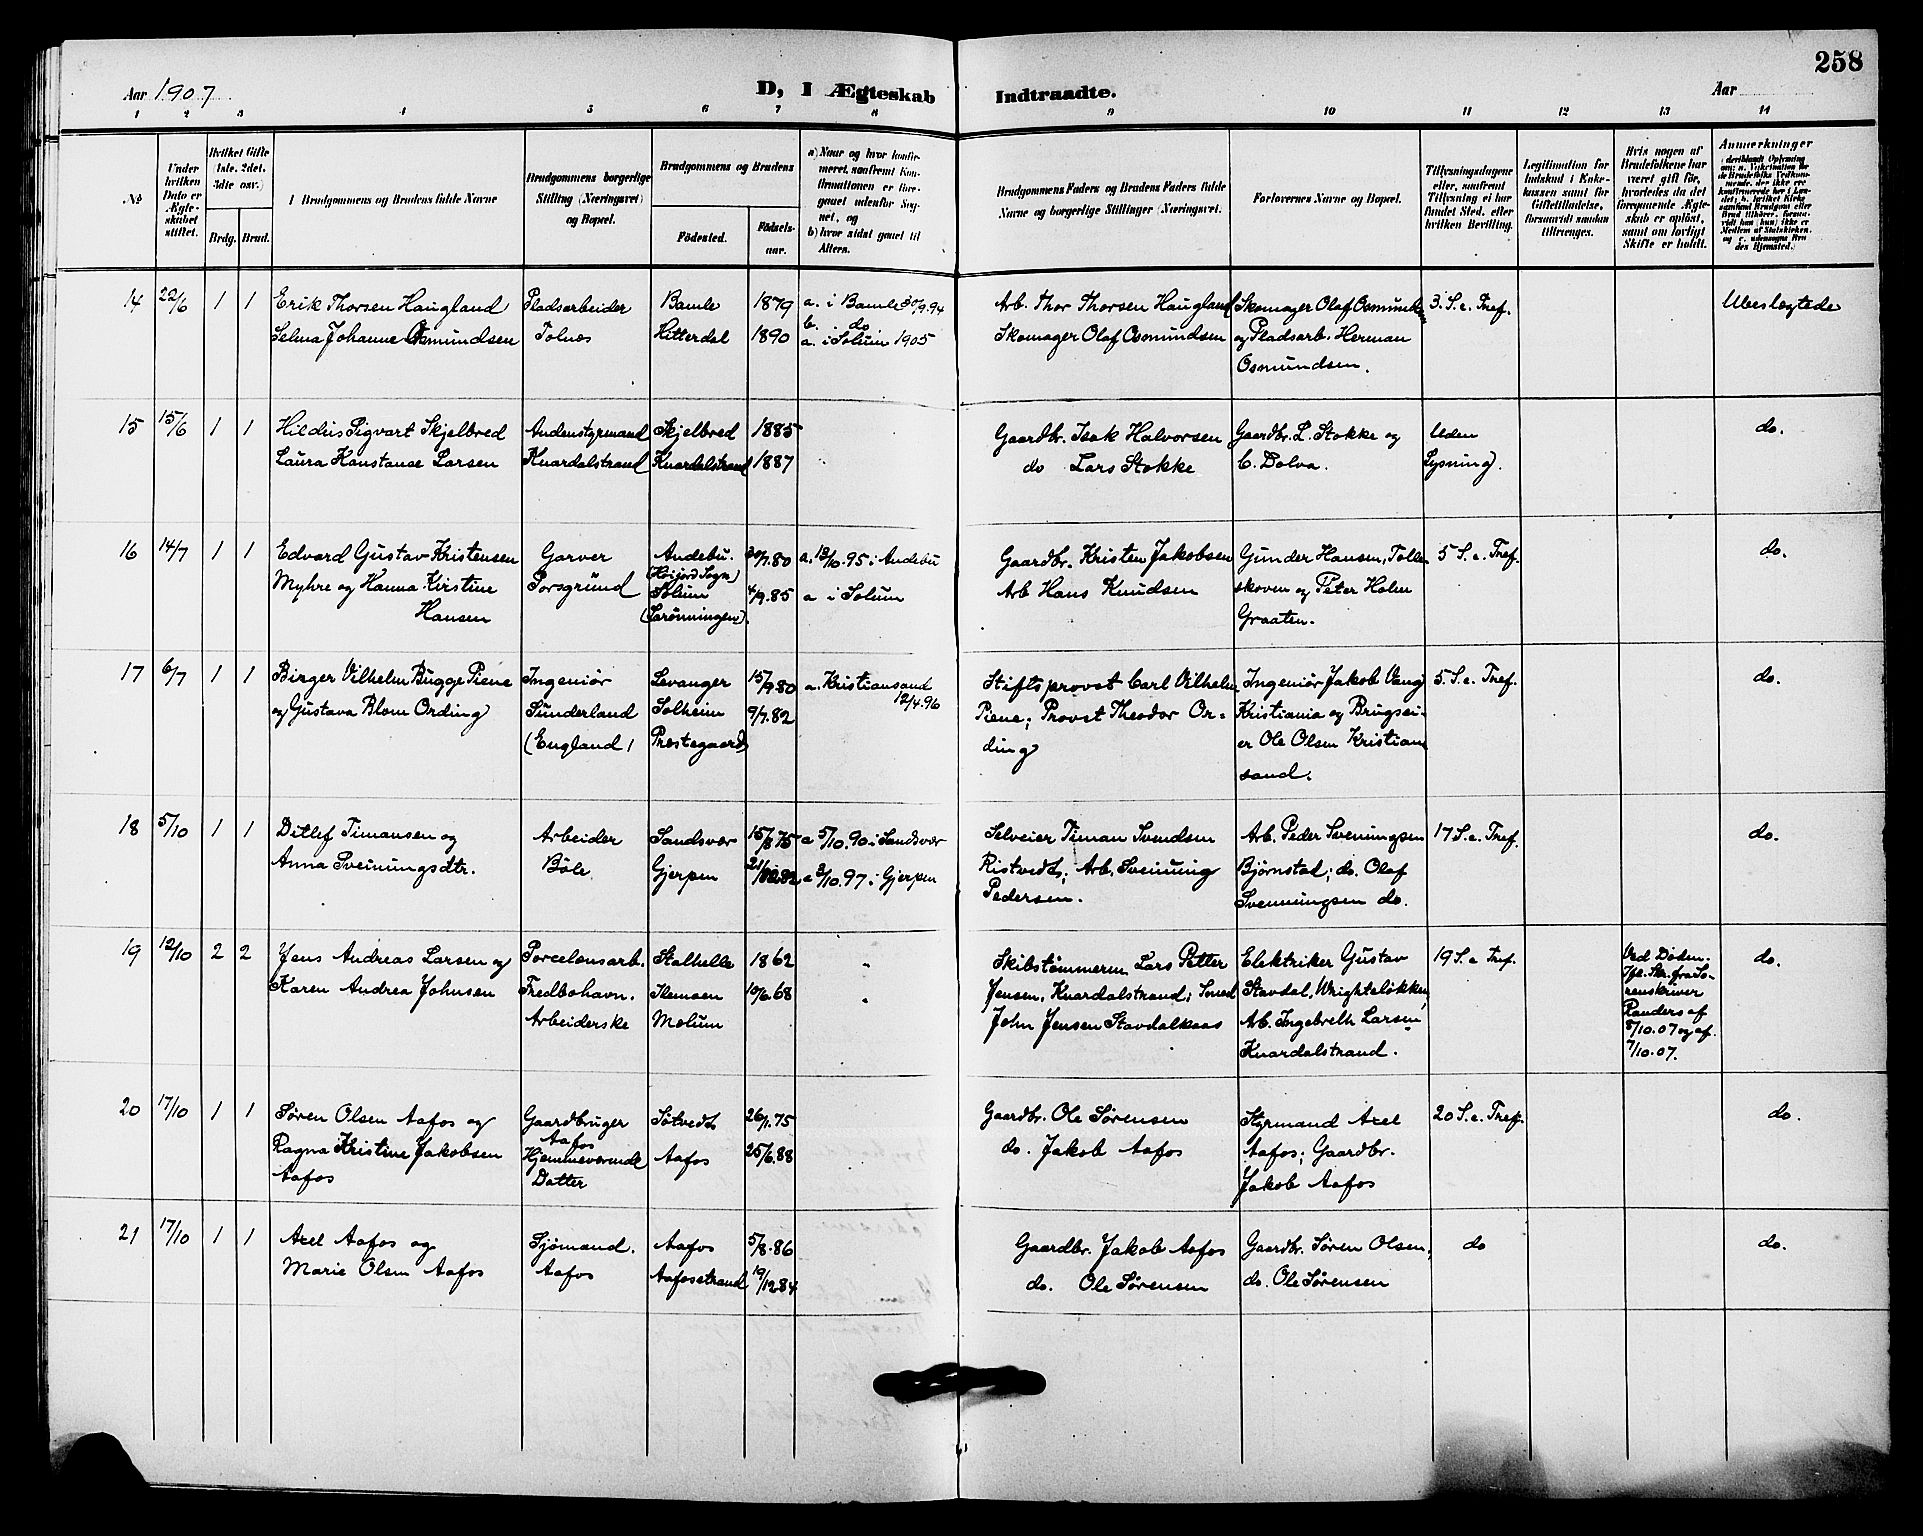 258
Aar 1907
D, I Ægteskab Indtraadte.
Aar
1 2 3 4 5 6 7 8 9 10 11 12 13 14
№
Under hvilken Dato er Ægteskabet stiftet.
Hvilket Gifte (1ste. 2det. 3die osv.)
Brdg. Brud.
I Brudgommens og Brudens fulde Navne
Brudgommens borgerlige Stilling (Næringsvei) og Bopæl.
Brudgommens og Brudens
Fødested.
Fødselsaar.
a) Naar og hvor konfirmeret, saafremt Konfirmationen er foregaaet udenfor Sognet, og
b) hvor sidst gaaet til Alters.
Brudgommens Faders og Brudens Faders fulde Navne og borgerlige Stillinger (Næringsvei.
Forlovernes Navne og Bopæl.
Tillysningsdagene eller, saafremt Tillysning ei har fundet Sted, efter hvilken Bevilling.
Legitimation for Indskud i Enkekassen samt for Giftetilladelse, forsaavidt saadan tiltrænges.
Hvis nogen af Brudefolkene har været gift før, hvorledes da det foregaaende Ægteskab er opløst, samt om lovligt Skifte er holdt.
Anmærkninger
14 22/6 1 1
Erik Thorsen Haugland
Selma Johanne Osmundsen
Pladsarbeider
Tolnæs
Bamle 1879
Hitterdal 1890
a. i Bamle 30/9.94
b. do
a. i Solum 1905
Arb. Thor Thorsen Haugland
Skomager Olaf Osmundsen
Skomager Olaf Osmundsen
og Pladsarb. Herman
Osmundsen.
3. S. e. Tref.
Ubeslægtede
15 15/6 1 1
Hildus Sigvart Skjelbred
Laura Konstanse Larsen
Andenstyrmand
Knardalstrand
Skjelbred 1885
Knardalstrand 1887
Gaardbr. Isak Halvorsen
do Lars Stokke
Gaardbr. L. Stokke og
C. Dolva.
Uden
Lysning.
do.
16 14/7 1 1
Edvard Gustav Kristensen
Myhre og Hanna Kirstine
Hansen
Garver
Porsgrund
Andebu.
(Høijord Sogn)
Solum
20/7.80
4/9.85
a. 13/10.95 i Andebu
a i Solum
Gaardbr. Kristen Jakobsen
Arb Hans Knudsen
Gunder Hansen, Tolle
skoven og Peter Holm
Graaten.
5 S. e. Tref.
do.
17 6/7 1 1
Birger Vilhelm Bugge Piene
og Gustava Blom Ording
Ingeniør
Sunderland
(England)
Levanger
Solheim
Prestegaard
15/9.80
9/7.82
a. Kristiansand
12/4.96
Stiftsprovst Carl Vilhelm
Piene; Provst Theodor Or=
ding
Ingeniør Jakob Vang
Kristiania og Brugsei-
er Ole Olsen Kristian
sand.
5. S. e. Tref.
do.
18 5/10 1 1
Ditlef Timansen og
Anna Sveinungsdtr.
Arbeider
Böle
Sandsvær
Gjerpen
15/8 75
a 5/10.90 i Sandsvær
a 3/10.97 i Gjerpen
Selveier Timan Svendsen
Ristvedt; Arb. Sveinung
Pedersen.
Arb. Peder Sveningsen
Bjørnstad; do. Olaf
Svenningsen do.
17 S. e. Tref.
do.
19 12/10 2 2
Jens Andreas Larsen og
Karen Andrea Johnsen
Porcelænsarb.
Fredbohavn.
Arbeiderske
Stathelle 1862
Klemoen 10/6.68
Melum
Skibstømmerm. Lars Petter
Jensen, Knardalstrand; Smed
John Jensen Stavdalkaas
Elektriker Gustav
Stavdal, Wrightsløkken,
Arb. Ingebreth Larsen
Knardalstrand.
19 S. e Tref.
Ved Døden.
renskriver
Randers af
8/10.07 og af
7/10.07.
do.
20 17/10 1 1
Søren Olsen Aafos og
Ragna Kristine Jakobsen
Aafos
Gaardbruger
Aafos
Hjemmeværende
Datter
Søtvedt
Aafos
26/1.75
25/6.88
Gaardbr. Ole Sørensen
do. Jakob Aafos
Styrmand Axel
Aafos; Gaardbr.
Jakob Aafos
20 S. e. Tref.
do.
21 17/10 1 1
Axel Aafos og
Marie Olsen Aafos
Sjømand.
Aafos
Aafos
Aafosstrand
5/8.86
19/12 84
Gaardbr. Jakob Aafos
do. Ole Sørensen
Gaardbr. Søren Olsen;
do. Ole Sørensen
do
do.